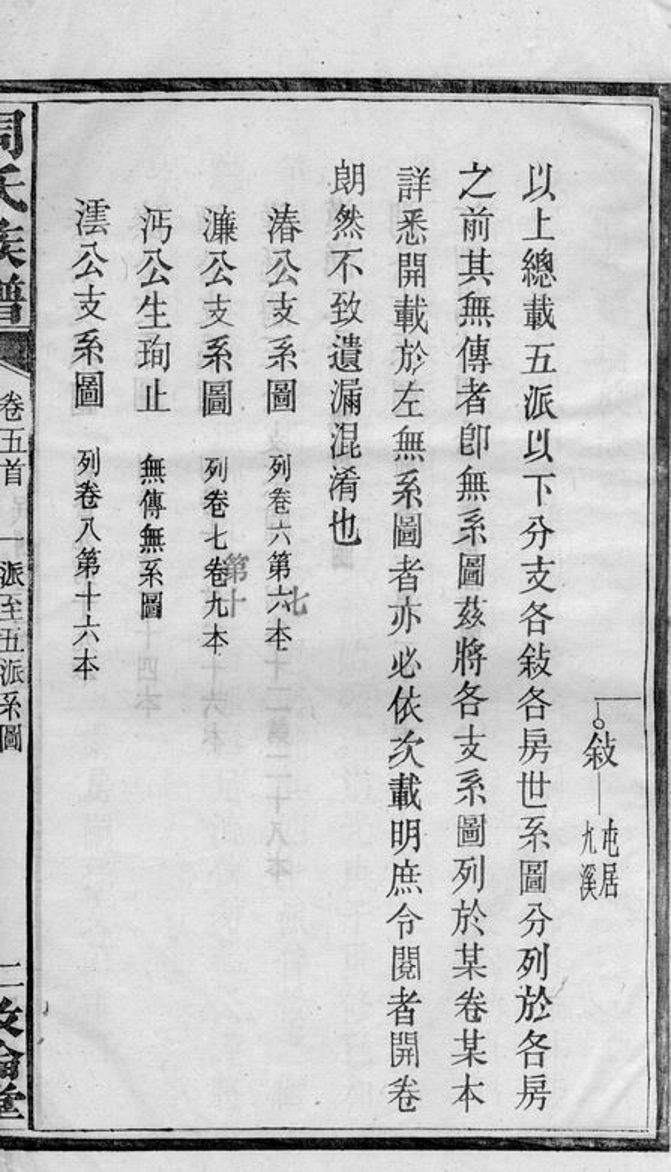 敍
屯居
尢溪
以上總載五派以下分支各敍各房世系圖分列於各房
之前其無傳者卽無系圖茲將各支系圖列於某卷某本
詳悉開載於左無系圖者亦必依次載明庶令閱者開卷
朗然不致遺漏混淆也
湷公支系圖 列卷六第六本
七
濂公支系圖 列卷七卷九本
第十
沔公生珣止 無傳無系圖
澐公支系圖 列卷八第十六本
周氏族譜 卷五首 一派至五派系圖 二 敦倫堂